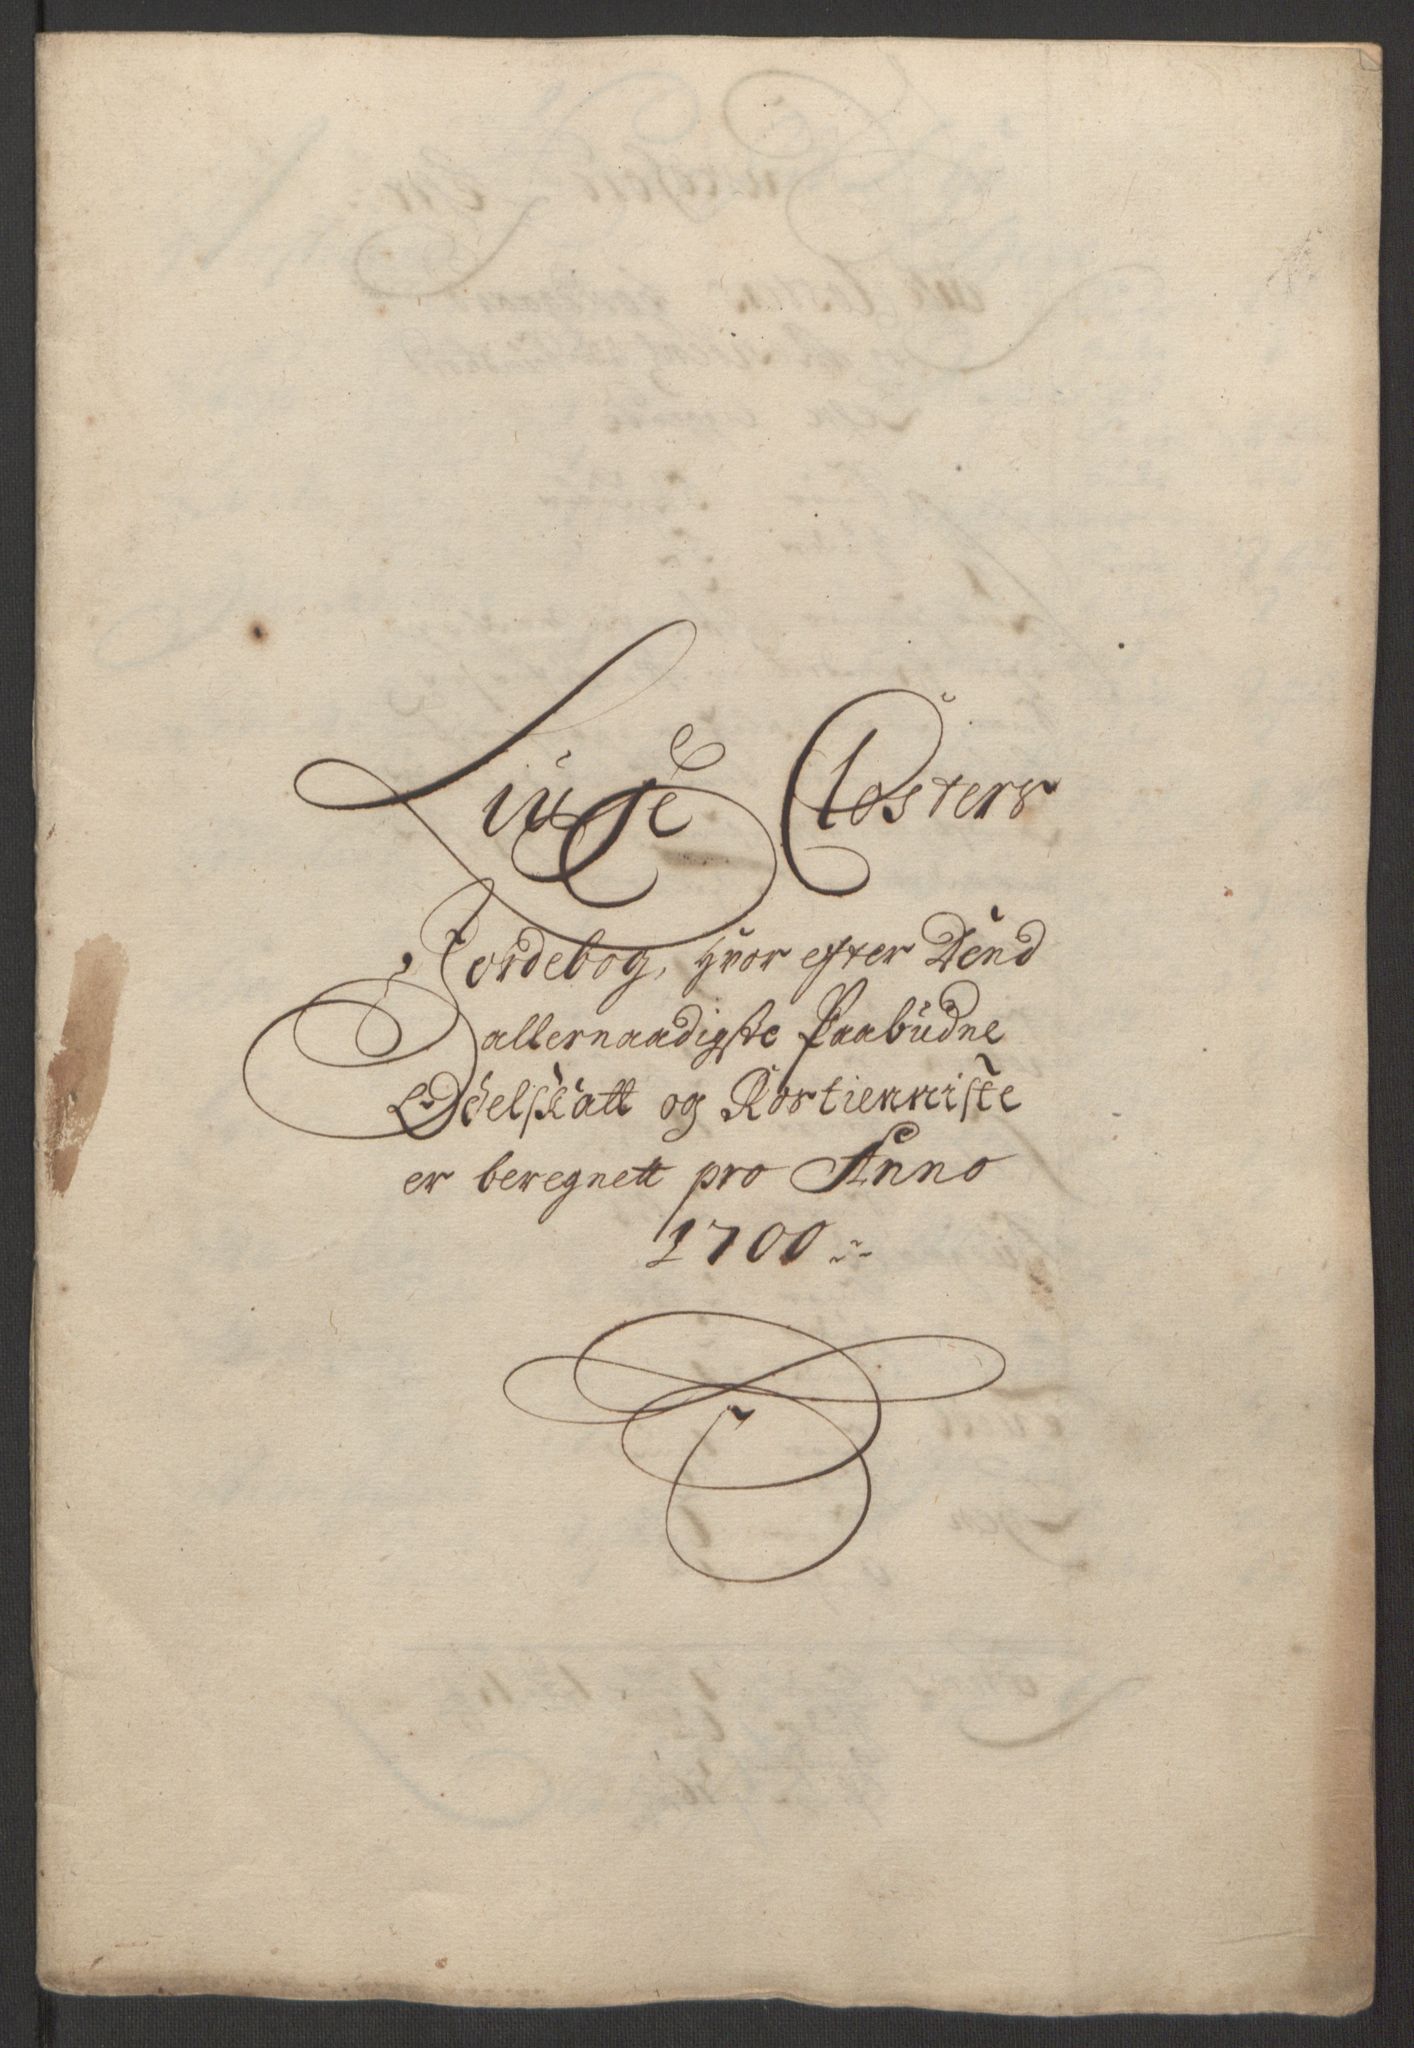 Liuse Closters
Jordebog, hvor efter Dend
allernaadigste Paabudne
Odelskatt og Rostienniste
er beregnett pro Anno
1700